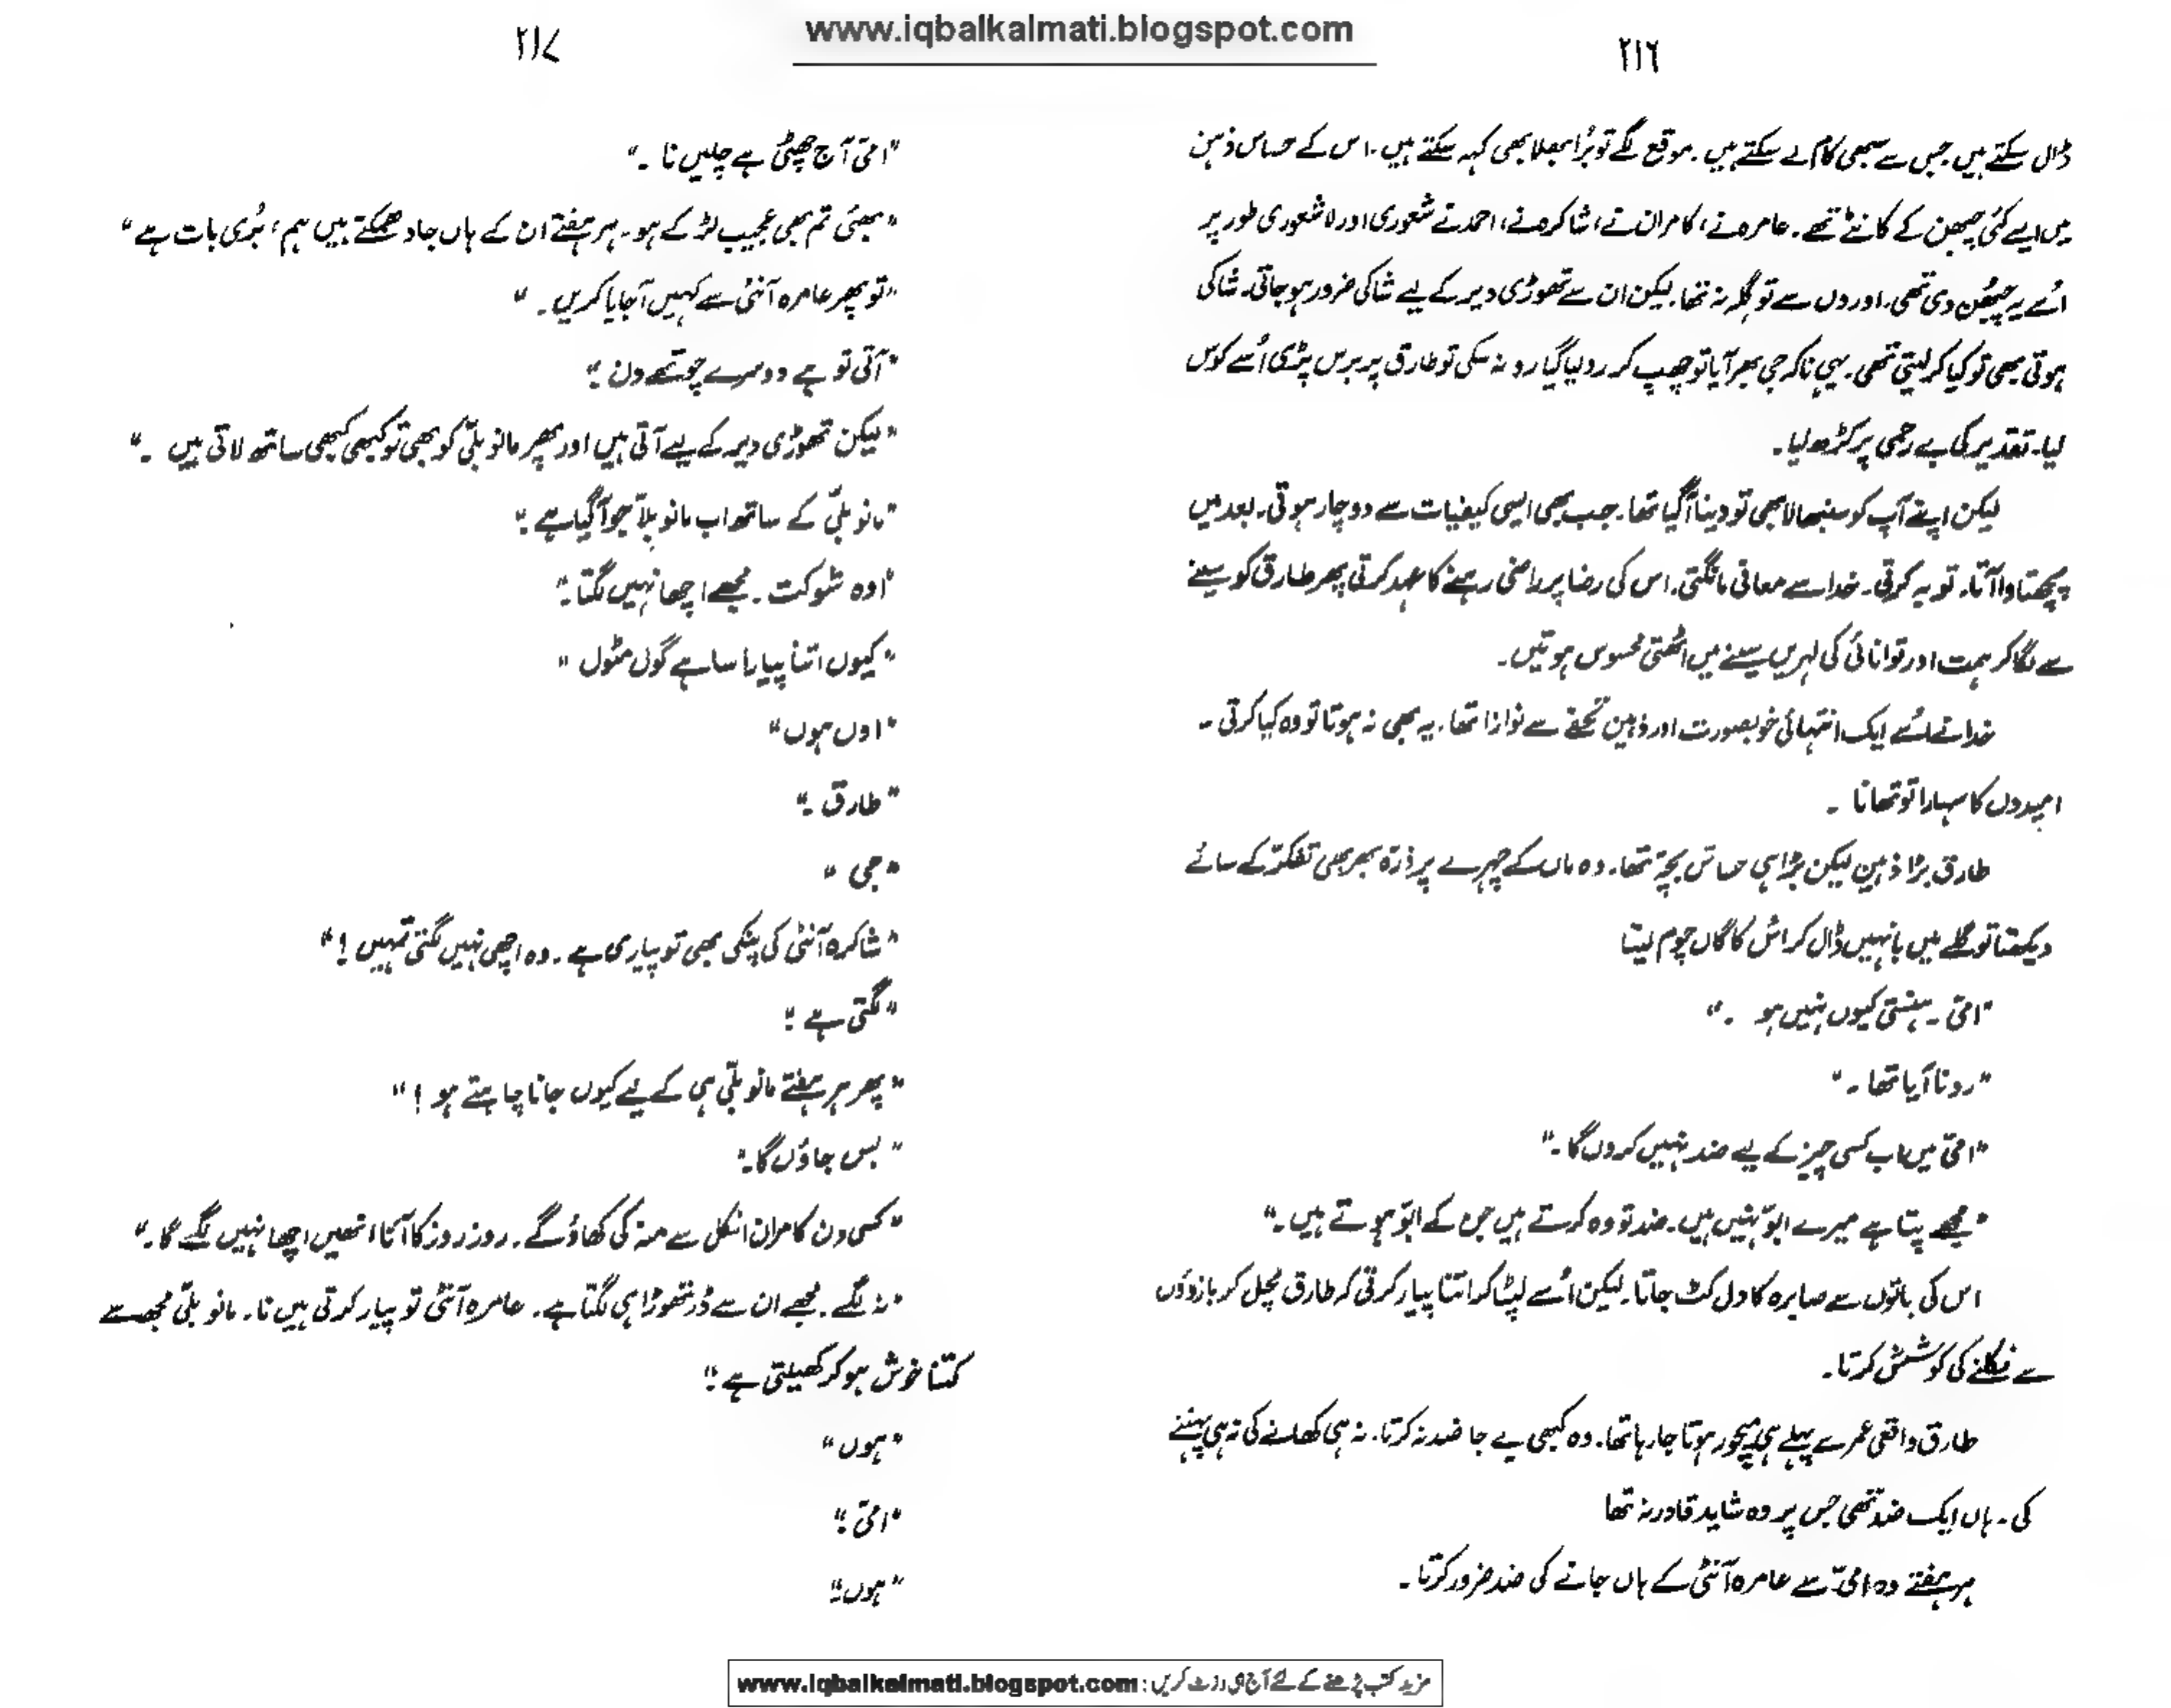 www.iqbalkalmati.blogspot.com
۲۱۶
ڈال سکتے ہیں جس سے سبھی کام لے سکتے ہیں۔ موقع لگے تو بُرا بھلا بھی کہہ سکتے ہیں۔ اس کے حساس ذہن
میں ایسے کئی چبھن کے کانٹے تھے۔ عامرہ نے، کامران نے، شاکرہ نے، احمد نے شعوری اور لاشعوری طور پر
اُسے یہ چبھن دی تھی۔ اوروں سے تو گلہ نہ تھا۔ لیکن ان سے تھوڑی دیر کے لیے شاکی ضرور ہو جاتی۔ شاکی
ہوتی بھی تو کیا کر لیتی تھی۔ یہی ناکہ جی بھر آیا تو چھپ کر رو لیا گیا رو نہ سکی تو طارق پر برس پڑی اُسے کوس
لیا۔ تقدیر کی بے رحمی پر کڑھ لیا۔
لیکن اپنے آپ کو سنبھالا بھی تو دینا آ گیا تھا۔ جب بھی ایسی کیفیات سے دوچار ہوتی۔ بعد میں
پچھتاوا آتا۔ توبہ کرتی۔ خدا سے معافی مانگتی۔ اس کی رضا پر راضی رہنے کا عہد کرتی پھر طارق کو سینے
سے لگا کر ہمت اور توانائی کی لہریں سینے میں اٹھتی محسوس ہوتیں۔
خدا نے اُسے ایک انتہائی خوبصورت اور ذہین تحفے سے نوازا تھا۔ یہ بھی نہ ہوتا تو وہ کیا کرتی ۔
امیدوں کا سہارا تو تھا نا ۔
طارق بڑا ذہین لیکن بڑا ہی حساس بچہ تھا۔ وہ ماں کے چہرے پر ذرّہ بھر بھی تفکّر کے سائے
دیکھتا تو گلے میں بانہیں ڈال کر اس کا گال چوم لیتا
"امّی ۔ ہنستی کیوں نہیں ہو ۔"
"رونا آیا تھا ۔"
"امّی میں اب کسی چیز کے لیے ضد نہیں کروں گا۔"
"مجھے پتا ہے میرے ابوّ نہیں ہیں۔ ضد تو وہ کرتے ہیں جن کے ابوّ ہوتے ہیں۔"
اس کی باتوں سے صابرہ کا دل کٹ جاتا۔ لیکن اُسے لپٹا کر اتنا پیار کرتی کہ طارق مچل کر بازوؤں
سے نکلنے کی کوشش کرتا۔
طارق واقعی عمر سے پہلے ہی میچور ہوتا جا رہا تھا۔ وہ کبھی بے جا ضد نہ کرتا۔ نہ ہی کھانے کی نہ ہی پہننے
کی ۔ ہاں ایک ضد تھی جس پر وہ شاید قادر نہ تھا
ہر ہفتے وہ امیّ سے عامرہ آنٹی کے ہاں جانے کی ضد ضرور کرتا ۔
۲۱۷
"امّی آج چھٹی ہے چلیں نا ۔"
"بھئی تم بھی عجیب لڑکے ہو۔ ہر ہفتے ان کے ہاں جا دھمکتے ہیں ہم، بُری بات ہے"
"تو پھر عامرہ آنٹی سے کہیں آ جایا کریں ۔"
"آتی تو ہے دوسرے چوتھے دن ۔"
"لیکن تھوڑی دیر کے لیے آتی ہیں اور پھر مانو بلّی کو بھی تو کبھی کبھی ساتھ لاتی ہیں ۔"
"مانو بلّی کے ساتھ اب مانو بلّا جو آ گیا ہے ۔"
"اوہ شوکت ۔ مجھے اچھا نہیں لگتا ۔"
"کیوں اتنا پیارا سا ہے گول مٹول"
"اوں ہوں"
"طارق ۔"
"جی"
"شاکرہ آنٹی کی پنکی بھی تو پیاری ہے ۔ وہ اچھی نہیں لگتی تمہیں !"
"لگتی ہے ۔"
"پھر ہر ہفتے مانو بلّی ہی کے لیے کیوں جانا چاہتے ہو !"
"بس جاؤں گا۔"
"کسی دن کامران انکل سے منہ کی کھاؤ گے۔ روز روز کا آنا انھیں اچھا نہیں لگے گا۔"
"نہ لگے۔ مجھے ان سے ڈر تھوڑا ہی لگتا ہے۔ عامرہ آنٹی تو پیار کرتی ہیں نا۔ مانو بلّی مجھ سے
کتنا خوش ہو کر کھیلتی ہے ۔"
"ہوں"
"امّی ۔"
"ہوں ۔"
مزید کتب پڑھنے کے لئے آج ہی وزٹ کریں : www.iqbalkalmati.blogspot.com